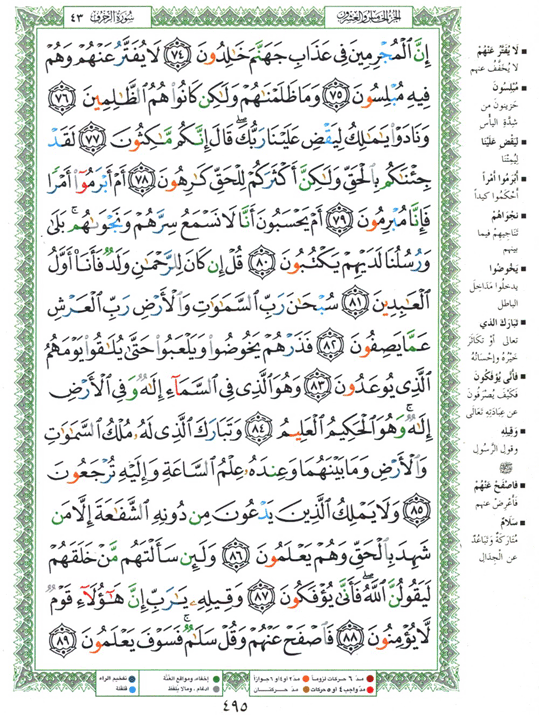 ٤٣
سُورَةُ الزُّخْرُفِ
الجزء الخامس والعشرون
إِنَّ ٱلْمُجْرِمِينَ فِى عَذَابِ جَهَنَّمَ خَٰلِدُونَ ﴿٧٤﴾ لَا يُفَتَّرُ عَنْهُمْ وَهُمْ
فِيهِ مُبْلِسُونَ ﴿٧٥﴾ وَمَا ظَلَمْنَٰهُمْ وَلَٰكِن كَانُوا۟ هُمُ ٱلظَّٰلِمِينَ ﴿٧٦﴾
وَنَادَوْا۟ يَٰمَٰلِكُ لِيَقْضِ عَلَيْنَا رَبُّكَ ۖ قَالَ إِنَّكُم مَّٰكِثُونَ ﴿٧٧﴾ لَقَدْ
جِئْنَٰكُم بِٱلْحَقِّ وَلَٰكِنَّ أَكْثَرَكُمْ لِلْحَقِّ كَٰرِهُونَ ﴿٧٨﴾ أَمْ أَبْرَمُوٓا۟ أَمْرًا
فَإِنَّا مُبْرِمُونَ ﴿٧٩﴾ أَمْ يَحْسَبُونَ أَنَّا لَا نَسْمَعُ سِرَّهُمْ وَنَجْوَىٰهُم ۚ بَلَىٰ
وَرُسُلُنَا لَدَيْهِمْ يَكْتُبُونَ ﴿٨٠﴾ قُلْ إِن كَانَ لِلرَّحْمَٰنِ وَلَدٌ فَأَنَا۠ أَوَّلُ
ٱلْعَٰبِدِينَ ﴿٨١﴾ سُبْحَٰنَ رَبِّ ٱلسَّمَٰوَٰتِ وَٱلْأَرْضِ رَبِّ ٱلْعَرْشِ
عَمَّا يَصِفُونَ ﴿٨٢﴾ فَذَرْهُمْ يَخُوضُوا۟ وَيَلْعَبُوا۟ حَتَّىٰ يُلَٰقُوا۟ يَوْمَهُمُ
ٱلَّذِى يُوعَدُونَ ﴿٨٣﴾ وَهُوَ ٱلَّذِى فِى ٱلسَّمَآءِ إِلَٰهٌ وَفِى ٱلْأَرْضِ
إِلَٰهٌ ۚ وَهُوَ ٱلْحَكِيمُ ٱلْعَلِيمُ ﴿٨٤﴾ وَتَبَارَكَ ٱلَّذِى لَهُۥ مُلْكُ ٱلسَّمَٰوَٰتِ
وَٱلْأَرْضِ وَمَا بَيْنَهُمَا وَعِندَهُۥ عِلْمُ ٱلسَّاعَةِ وَإِلَيْهِ تُرْجَعُونَ
﴿٨٥﴾ وَلَا يَمْلِكُ ٱلَّذِينَ يَدْعُونَ مِن دُونِهِ ٱلشَّفَٰعَةَ إِلَّا مَن
شَهِدَ بِٱلْحَقِّ وَهُمْ يَعْلَمُونَ ﴿٨٦﴾ وَلَئِن سَأَلْتَهُم مَّنْ خَلَقَهُمْ
لَيَقُولُنَّ ٱللَّهُ ۖ فَأَنَّىٰ يُؤْفَكُونَ ﴿٨٧﴾ وَقِيلِهِۦ يَٰرَبِّ إِنَّ هَٰٓؤُلَآءِ قَوْمٌ
لَّا يُؤْمِنُونَ ﴿٨٨﴾ فَٱصْفَحْ عَنْهُمْ وَقُلْ سَلَٰمٌ ۚ فَسَوْفَ يَعْلَمُونَ ﴿٨٩﴾
لا يُفَتَّرُ عَنْهُمْ
لا يُخَفَّفُ عنهم
مُبْلِسُونَ
حَزِينُونَ من
شِدَّةِ اليأسِ
لِيَقْضِ عَلَيْنَا
لِيُمِتْنَا
أَبْرَمُوا أَمْراً
أَحْكَمُوا كيداً
نَجْوَاهُمْ
تَنَاجِيهِمْ فيما
بينهم
يَخُوضُوا
يدخلوا مَدَاخِلَ
الباطل
تَبَارَكَ الذي
تعالى أو تكاثَرَ
خَيْرُهُ وإِحْسَانُهُ
فأنَّى يُؤْفَكُونَ
فكيفَ يُصْرَفُونَ
عن عِبَادَتِهِ تَعَالَى
وَقِيلِهِ
وقولِ الرَّسُولِ
ﷺ
فَاصْفَحْ عَنْهُمْ
فَأَعْرِضْ عنهم
سَلَامٌ
مُتَارَكَةٌ وَتَبَاعُدٌ
عن الجِدَالِ
مدّ ٦ حركات لزوماً
مدّ ٢ أو ٤ أو ٦ جوازاً
إخفاء، ومواقع الغُنَّة
تفخيم الراء
مدّ واجب ٤ أو ٥ حركات
مدّ حركتان
ادغام، ومالا يلفظ
قلقلة
٤٩٥